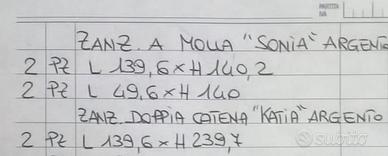 PARTITA
IVA
ZANZ. A MOLLA "SONIA" ARGENTO
2 PZ L 139,6 x H 140,2
2 PZ L 49,6 x H 140
ZANZ. DOPPIA CATENA "KATIA" ARGENTO
2 PZ L 139,6 x H 239,7
subito